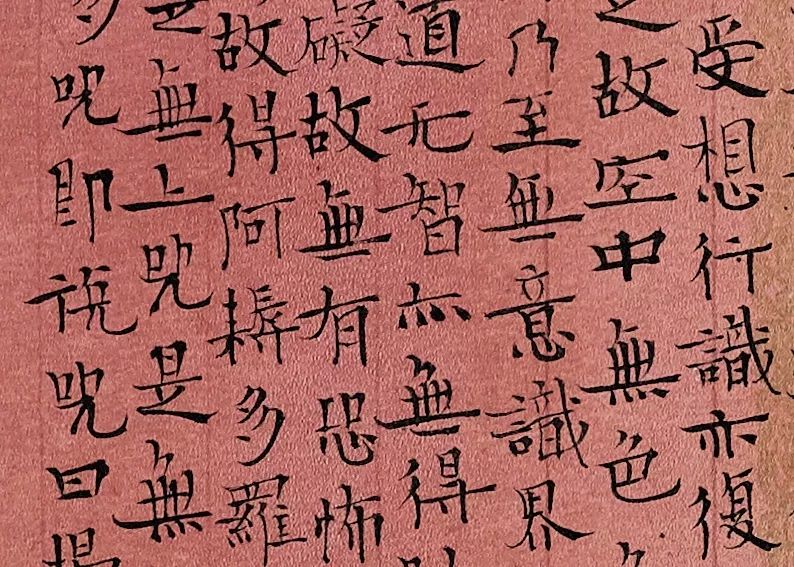 受想行識亦復
故空中無色
乃至無意識界
道无智亦無得
礙故無有恐怖
故得阿耨多羅
是無上咒是無
多咒即說咒曰揭